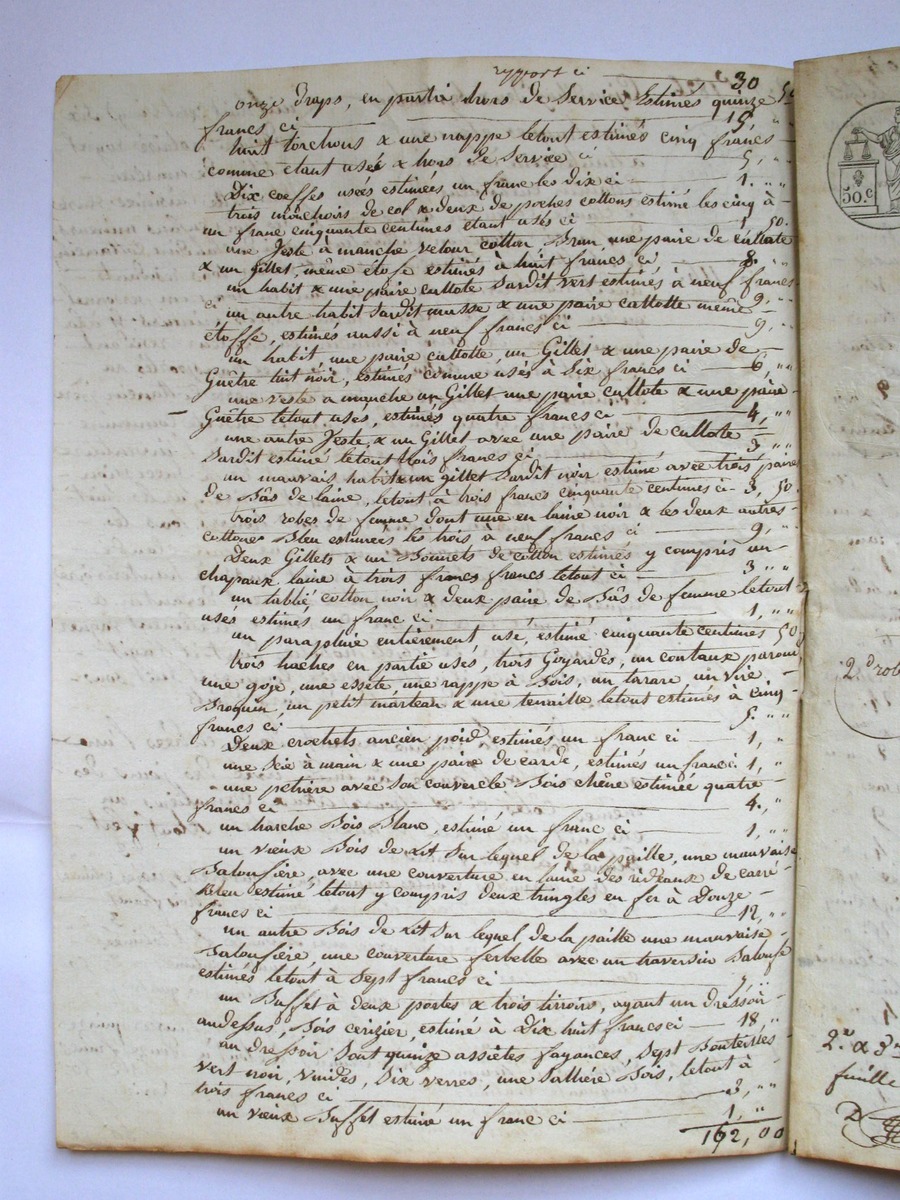 rapport ci 30
onze Draps, en partie hors de Service Estimés quinze 50
francs ci 15, " "
huit torchons & une nappe letout estimés cinq francs
comme etant usés & hors de Service ci 5, " "
Dix coeffes usées estimées un franc les dix ci 1. " "
trois mouchoirs de col & deux de poches cottons estimé les cinq à
un franc cinquante centimes etant usés ci 1 50.
une Veste à manche velour cotton Brun une paire de culotte
& un gillet, même étofe estimés à huit francs ci 8. " "
un habit & une paire culotte Sardit vert estimés à neuf francs
ci 9, " "
un autre habit Sardit musse & une paire culotte même
étoffe, estimés aussi à neuf francs ci 9, " "
un habit, une paire culotte, un Gillet & une paire de
Guêtre tout noir, estimés comme usés à Six francs ci 6, " "
une veste à manche un Gillet une paire culotte & une paire
Guêtre letout usés, estimés quatre francs ci 4, " "
une autre Veste & un Gillet avec une paire de culotte
Sardit estimé letout trois francs ci 3 " "
un mauvais habit & un gillet Sardit noir estimé avec trois paires
de Bâs de laine, letout à trois francs cinquante centimes ci 3, 50.
trois robes de femme dont une en laine noir & les deux autres
cottone Bleu estimées les trois à neuf francs ci 9, "
Deux Gillets & un Bonnets de cotton estimés y compris un
chapaux laine à trois francs francs letout ci 3 " "
un tablié cotton noir & deux paire de Bâs de femme letout
usés estimés un franc ci 1, " "
un parapluie entièrement usé, estimé cinquante centimes 50
trois haches en partie usés, trois Goyardes, un coutaux paroué
une goje, une essete, une rappe à Bois, un tarare un vire
Broquin, un petit marteau & une tenaille letout estimés à cinq
francs ci 5. " "
Deux crochets ancien poid, estimés un franc ci 1, "
une Scie à main & une paire de carde, estimés un franc ci 1, "
une petrière avec Son couvercle Bois chêne estimée quatre
francs ci 4., "
un harche Bois Blanc, estimé un franc ci 1, " "
un vieux Bois de Lit Sur lequel de la paille, une mauvaise
Baloufière, avec une couverture en laine des rideaux de carré
Bleu estimé letout y compris deux tringles en fer à Douze
francs ci 12, " "
un autre Bois de Lit Sur lequel de la paille une mauvaise
Baloufière, une couverture ferbelle avec un traversin Baloufe
estimés letout à Sept francs ci 7, " "
un Buffet à deux portes & trois tirroirs, ayant un dressoir
audessus, Bois cerizier, estimé à Dix huit francs ci 18, "
au dressoir Sont quinze assiètes fayances, Sept Bouteilles
vert noir, vuides, Six verres, une Salliére Bois, letout à
trois francs ci 3, " "
un vieux Buffet estimé un franc ci 1, "
162, 00
50.c
2.d rob
2.e & 3.
fuille